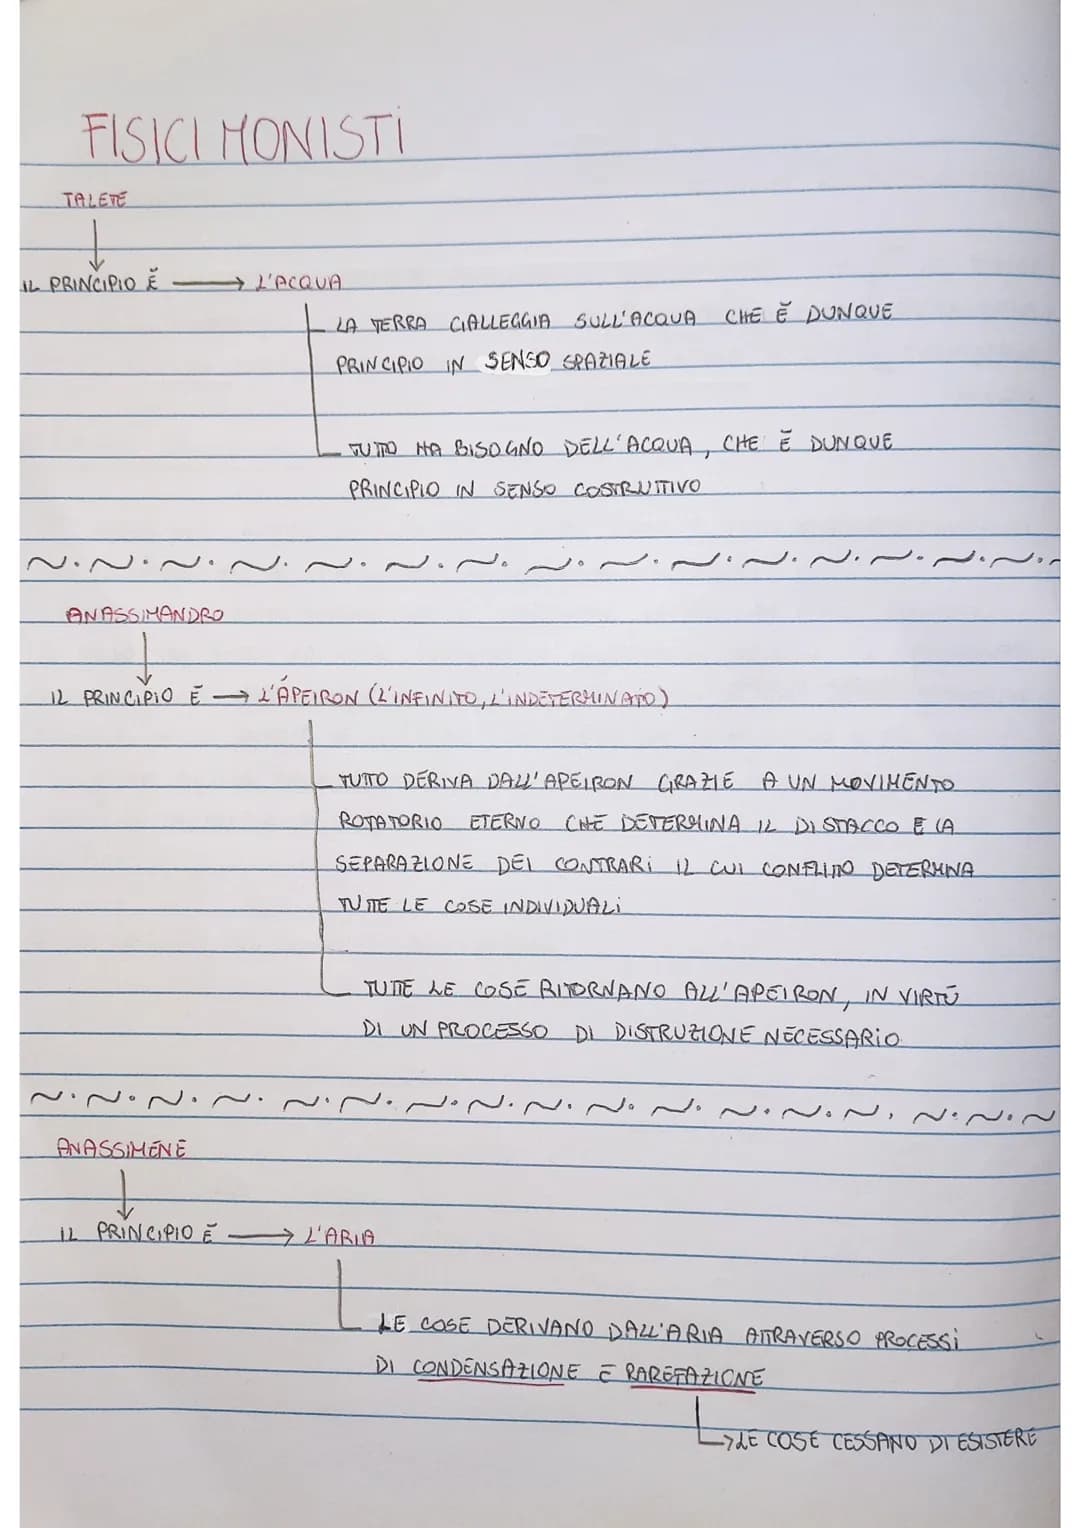 FISICI MONISTI
TALETE
IL PRINCIPIO È → L'ACQUA
LA TERRA GALLEGGIA SULL'ACQUA CHE È DUNQUE
PRINCIPIO IN SENSO SPAZIALE
TUTTO HA BISOGNO DELL'ACQUA, CHE È DUNQUE
PRINCIPIO IN SENSO COSTRUTTIVO
ANASSIMANDRO
IL PRINCIPIO È → L'ÁPEIRON (L'INFINITO, L'INDETERMINATO)
TUTTO DERIVA DALL'APEIRON GRAZIE A UN MOVIMENTO
ROTATORIO ETERNO CHE DETERMINA IL DISTACCO E LA
SEPARAZIONE DEI CONTRARI IL CUI CONFLITTO DETERMINA
TUTTE LE COSE INDIVIDUALI
TUTTE LE COSE RITORNANO ALL'APEIRON, IN VIRTÙ
DI UN PROCESSO DI DISTRUZIONE NECESSARIO
ANASSIMENE
IL PRINCIPIO È → L'ARIA
LE COSE DERIVANO DALL'ARIA ATTRAVERSO PROCESSI
DI CONDENSAZIONE E RAREFAZIONE
→ LE COSE CESSANO DI ESISTERE